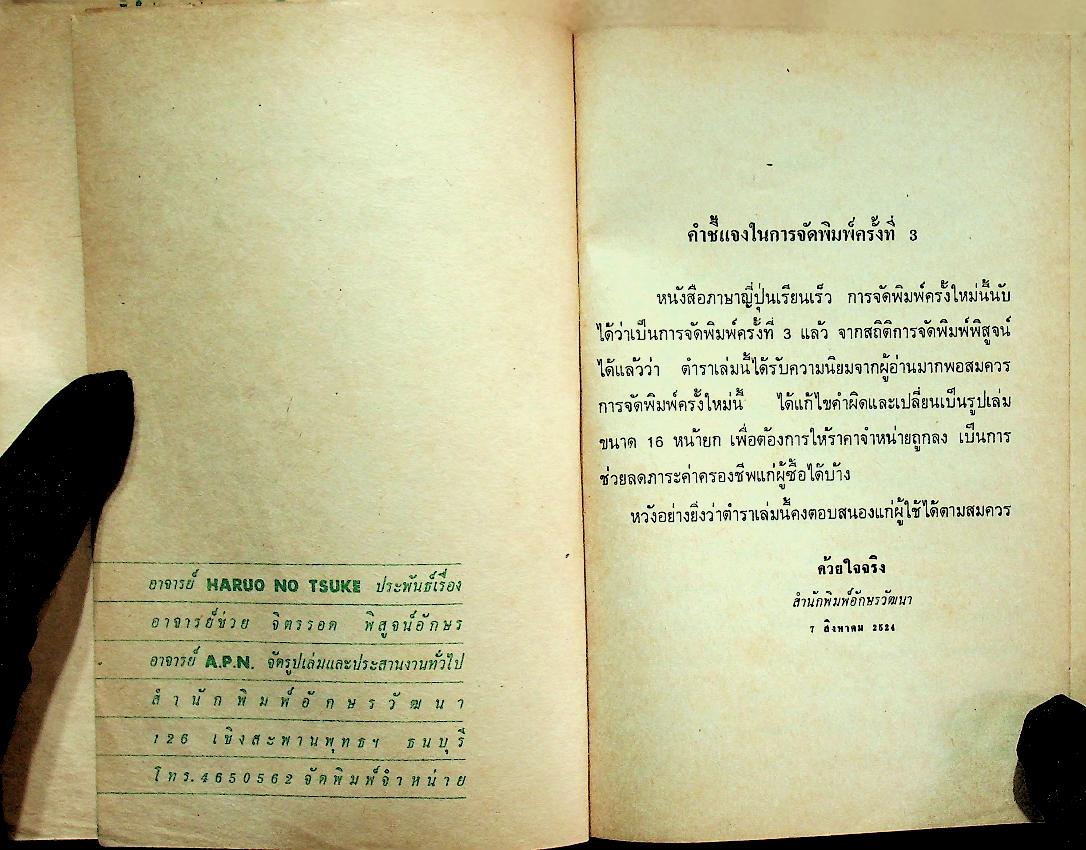 อาจารย์ HARUO NO TSUKE ประพันธ์เรื่อง
อาจารย์ช่วย จิตรรอด พิสูจน์อักษร
อาจารย์ A.P.N. จัดรูปเล่มและประสานงานทั่วไป
สำนักพิมพ์อักษรวัฒนา
126 เชิงสะพานพุทธฯ ธนบุรี
โทร.4650562 จัดพิมพ์จำหน่าย
คำชี้แจงในการจัดพิมพ์ครั้งที่ 3
หนังสือภาษาญี่ปุ่นเรียนเร็ว การจัดพิมพ์ครั้งใหม่นี้นับ
ได้ว่าเป็นการจัดพิมพ์ครั้งที่ 3 แล้ว จากสถิติการจัดพิมพ์พิสูจน์
ได้แล้วว่า ตำราเล่มนี้ได้รับความนิยมจากผู้อ่านมากพอสมควร
การจัดพิมพ์ครั้งใหม่นี้ ได้แก้ไขคำผิดและเปลี่ยนเป็นรูปเล่ม
ขนาด 16 หน้ายก เพื่อต้องการให้ราคาจำหน่ายถูกลง เป็นการ
ช่วยลดภาระค่าครองชีพแก่ผู้ซื้อได้บ้าง
หวังอย่างยิ่งว่าตำราเล่มนี้คงตอบสนองแก่ผู้ใช้ได้ตามสมควร
ด้วยใจจริง
สำนักพิมพ์อักษรวัฒนา
7 สิงหาคม 2524